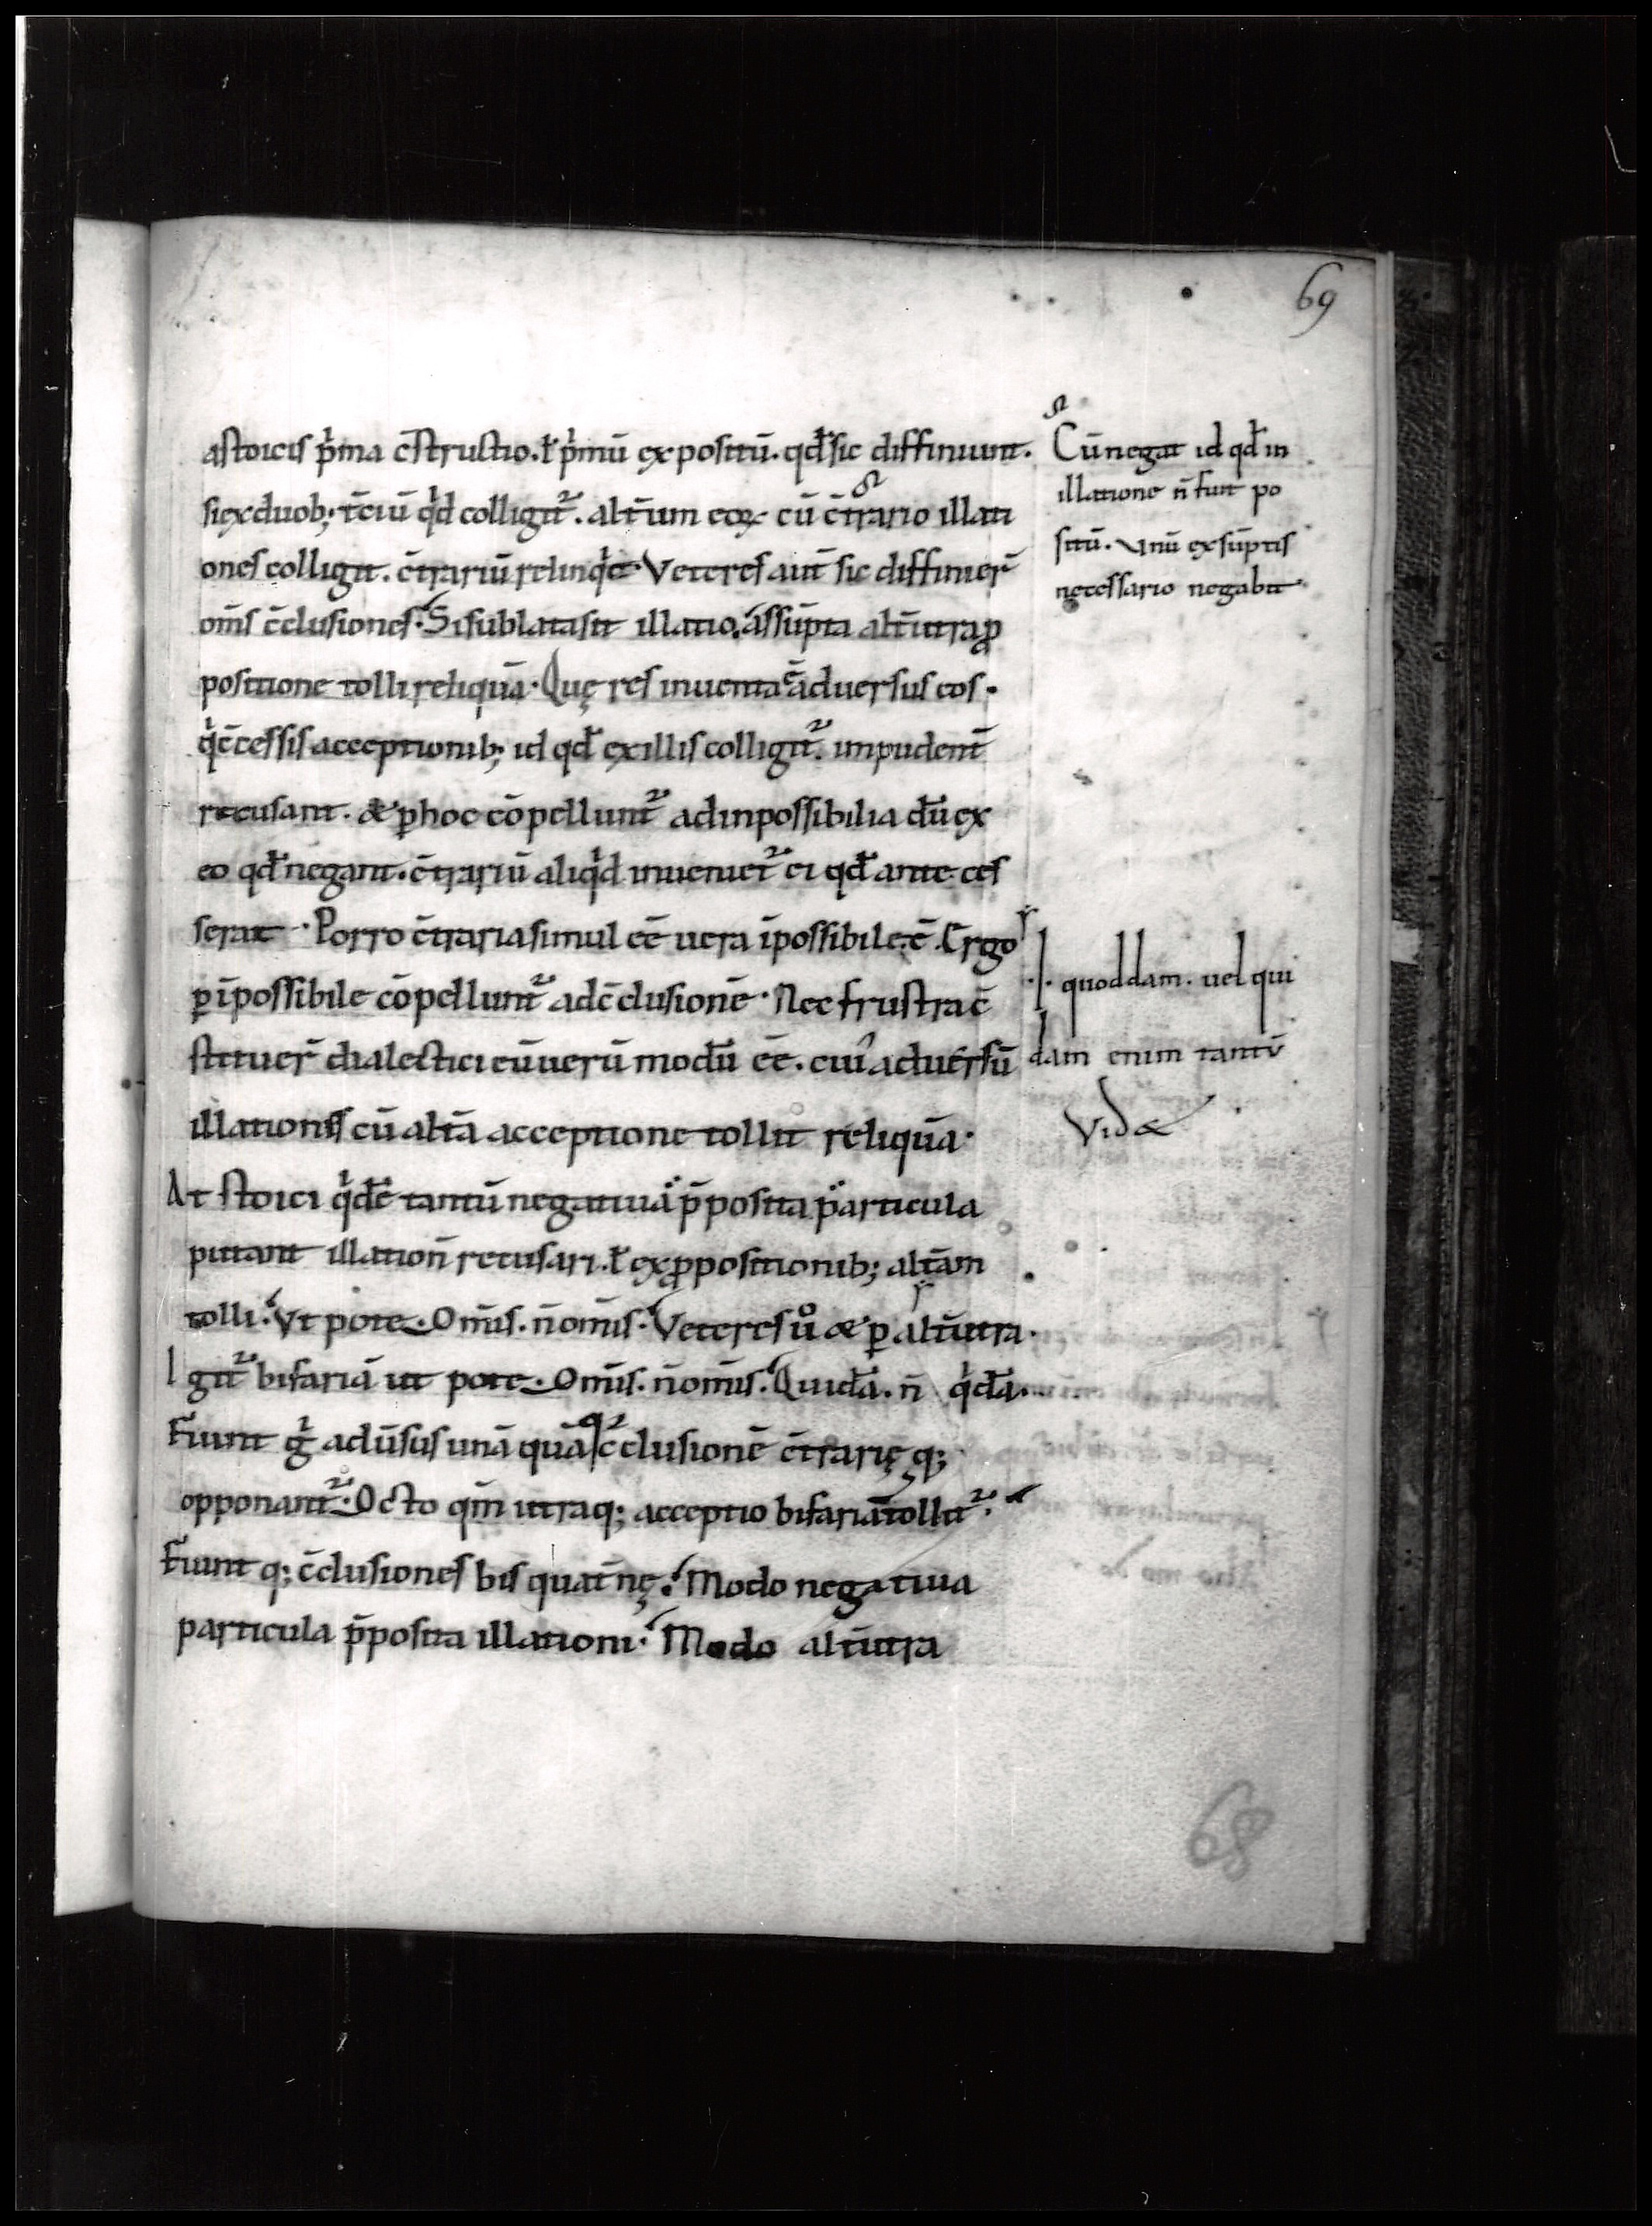 69
a stoicis p̄ma c̄structio. ł p̄mū expositū. qđ sic diffiniunt.
si ex duob; t̄ciū qͥd colligit᷑. alt̄um eoꝝ cū c̄trario illati
ones colligit. c̄trariū relinqͥt. Veteres aut̄ sic diffinier̄
om̄s c̄clusiones. Si sublata sit illatio. assūpta alt̄utra ꝓ
positione tolli reliquā. Quę res inuenta ē aduersus eos.
qͥ c̄cessis acceptionib; id qđ ex illis colligit᷑. impudent̄
recusant. & ꝑ hoc cōpellunt᷑ ad inpossibilia dū ex
eo qđ negant. c̄trariū aliqͥd inueniet᷑ ei qđ ante ces
serat. Porro c̄traria simul eē uera īpossibile. ē. Ergo
ꝑ īpossibile cōpellunt᷑ ad c̄clusionē. Nec frustra c̄
stituer̄ dialectici eū uerū modū eē. cuiꝰ aduersū
illationis cū alt̄a acceptione tollit reliquā.
At stoici qͥdē tantū negatiua p̄posita particula
putant illation̄ recusari. ł ex ꝓpositionib; alt̄am
tolli. Vt pote. Om̄is. n̄ om̄is. Veteres ů & ꝑ alt̄utra.
Igit᷑ bifariā ut pote. Om̄is. n̄ om̄is. Quidā. n̄ qͥdā.
Fiunt gͥ adūsus unā quāq; c̄clusionē c̄trarię q;
opponant᷑. Octo qm̄ utraq; acceptio bifariā tollit᷑.
Fiunt q; c̄clusiones bis quat̄nę. Modo negatiua
particula p̄posita illationi. Modo alt̄utra
Cū negat id qđ in
illatione n̄ fuit po
sitū. Vnū ex sūptis
necessario negabit
.I. quoddam. uel qui
dam enim tantū
Vid&
68